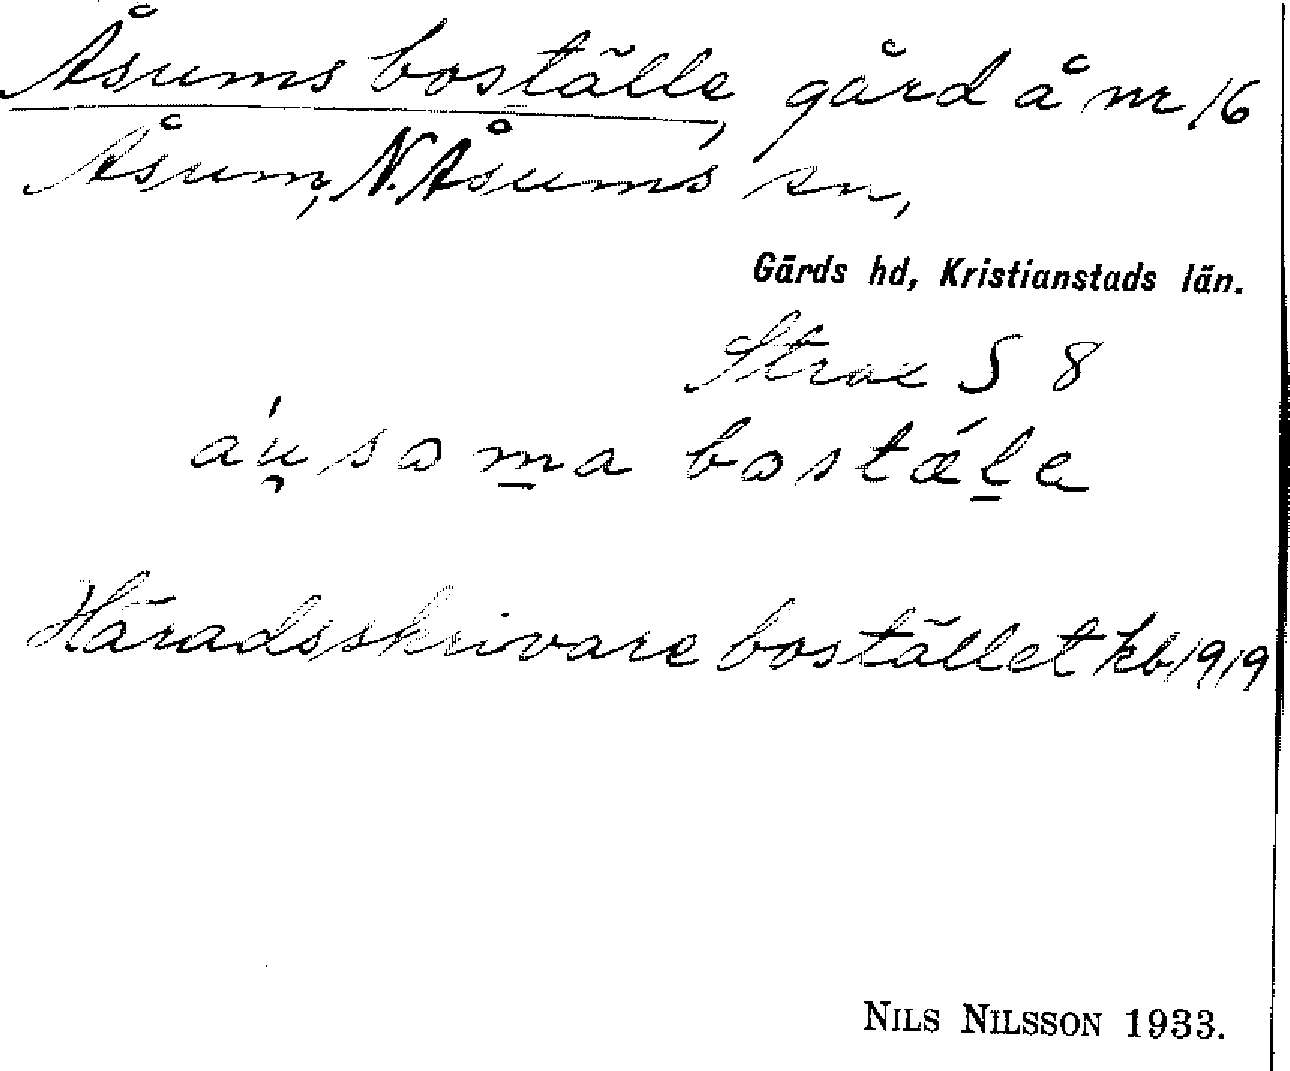 Åsums boställe, gård å nr 16
Åsum, N. Åsums sn,
Gärds hd, Kristianstads län.
Strax S 8
áu̯soma bostǽla
Häradsskrivarebostället kb 1919
NILS NILSSON 1933.